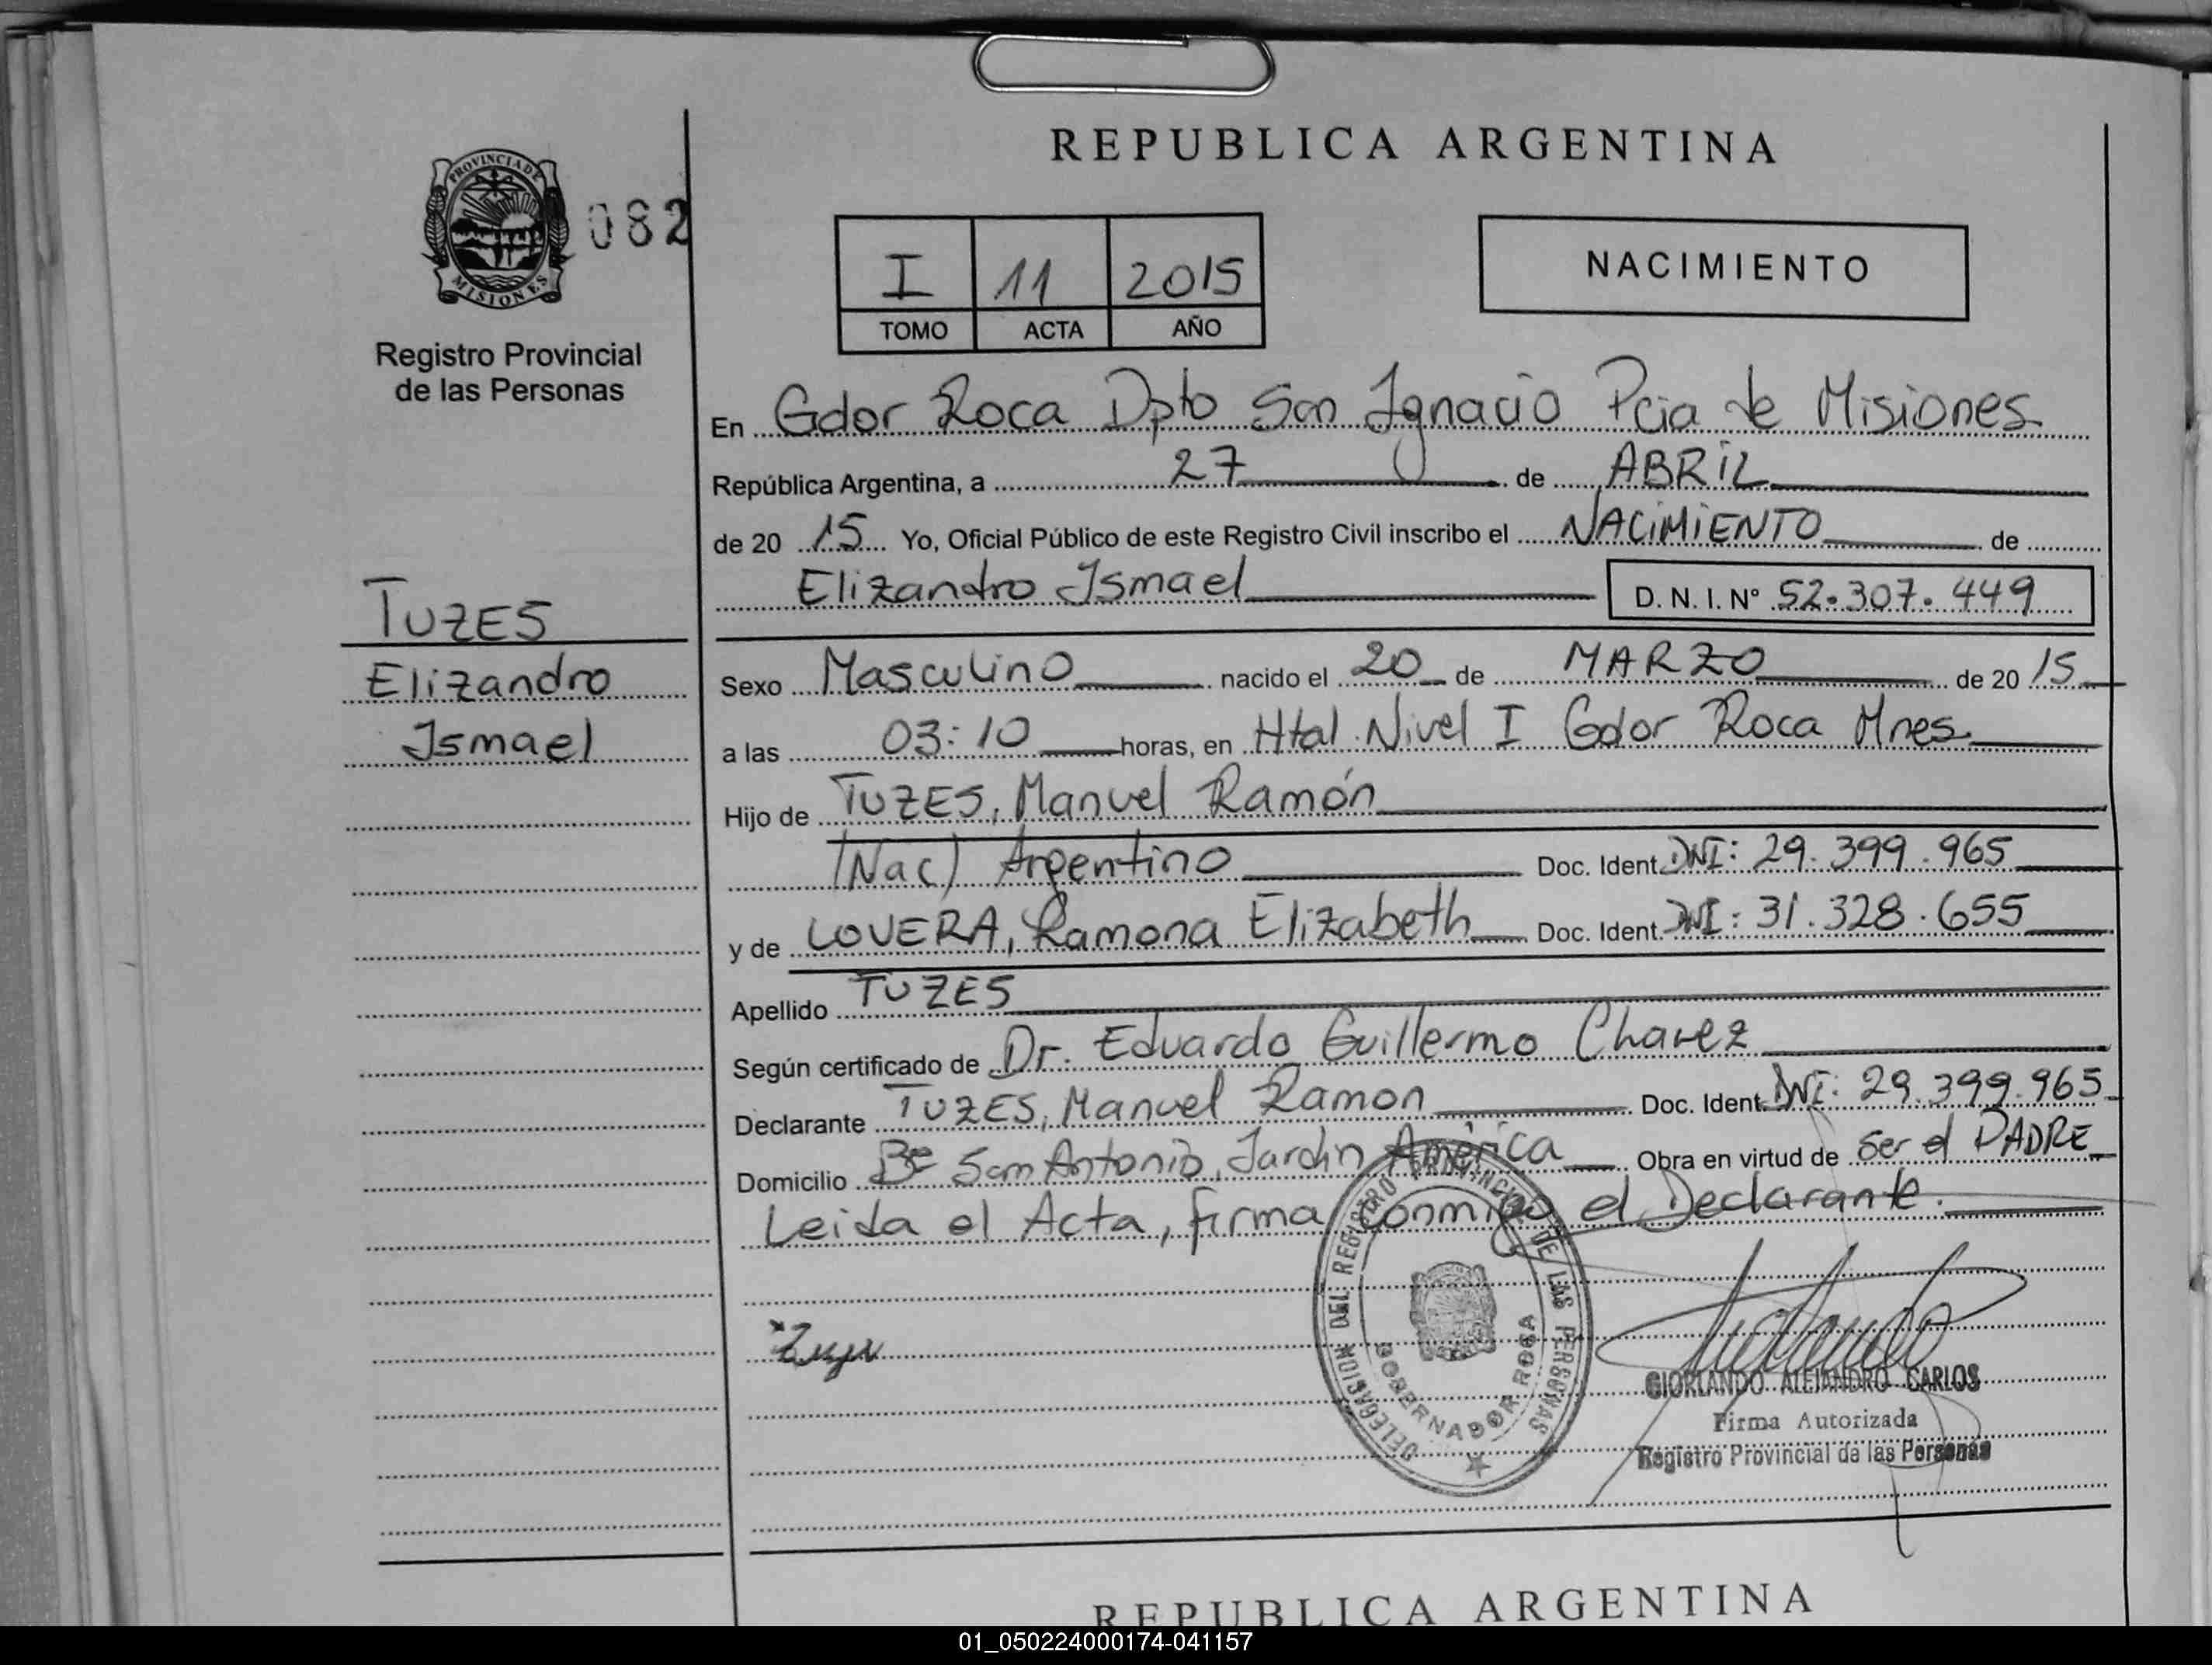 REPUBLICA ARGENTINA
PROVINCIA DE
MISIONES
082
Registro Provincial
de las Personas
I 11 2015
TOMO ACTA AÑO
NACIMIENTO
En Gdor Roca Dpto San Ignacio Pcia de Misiones
República Argentina, a 27 de ABRIL
de 20 15 Yo, Oficial Público de este Registro Civil inscribo el NACIMIENTO de
Elizandro Ismael D. N. I. N° 52.307.449
TUZES
Elizandro
Ismael
Sexo Masculino nacido el 20 de MARZO de 20 15
a las 03:10 horas, en Htal Nivel I Gdor Roca Mnes.
Hijo de TUZES, Manuel Ramón
(Nac) Argentino Doc. Ident. DNI: 29.399.965
y de LOVERA, Ramona Elizabeth Doc. Ident. DNI: 31.328.655
Apellido TUZES
Según certificado de Dr. Eduardo Guillermo Chavez
Declarante TUZES, Manuel Ramon Doc. Ident. DNI: 29.399.965
Domicilio Bº San Antonio, Jardin América Obra en virtud de ser el PADRE
Leida el Acta, firma conmigo el Declarante.
DELEGACION DEL REGISTRO PROVINCIAL DE LAS PERSONAS
GOBERNADOR ROCA
GIORLANDO ALEJANDRO CARLOS
Firma Autorizada
Registro Provincial de las Personas
REPUBLICA ARGENTINA
01_050224000174-041157